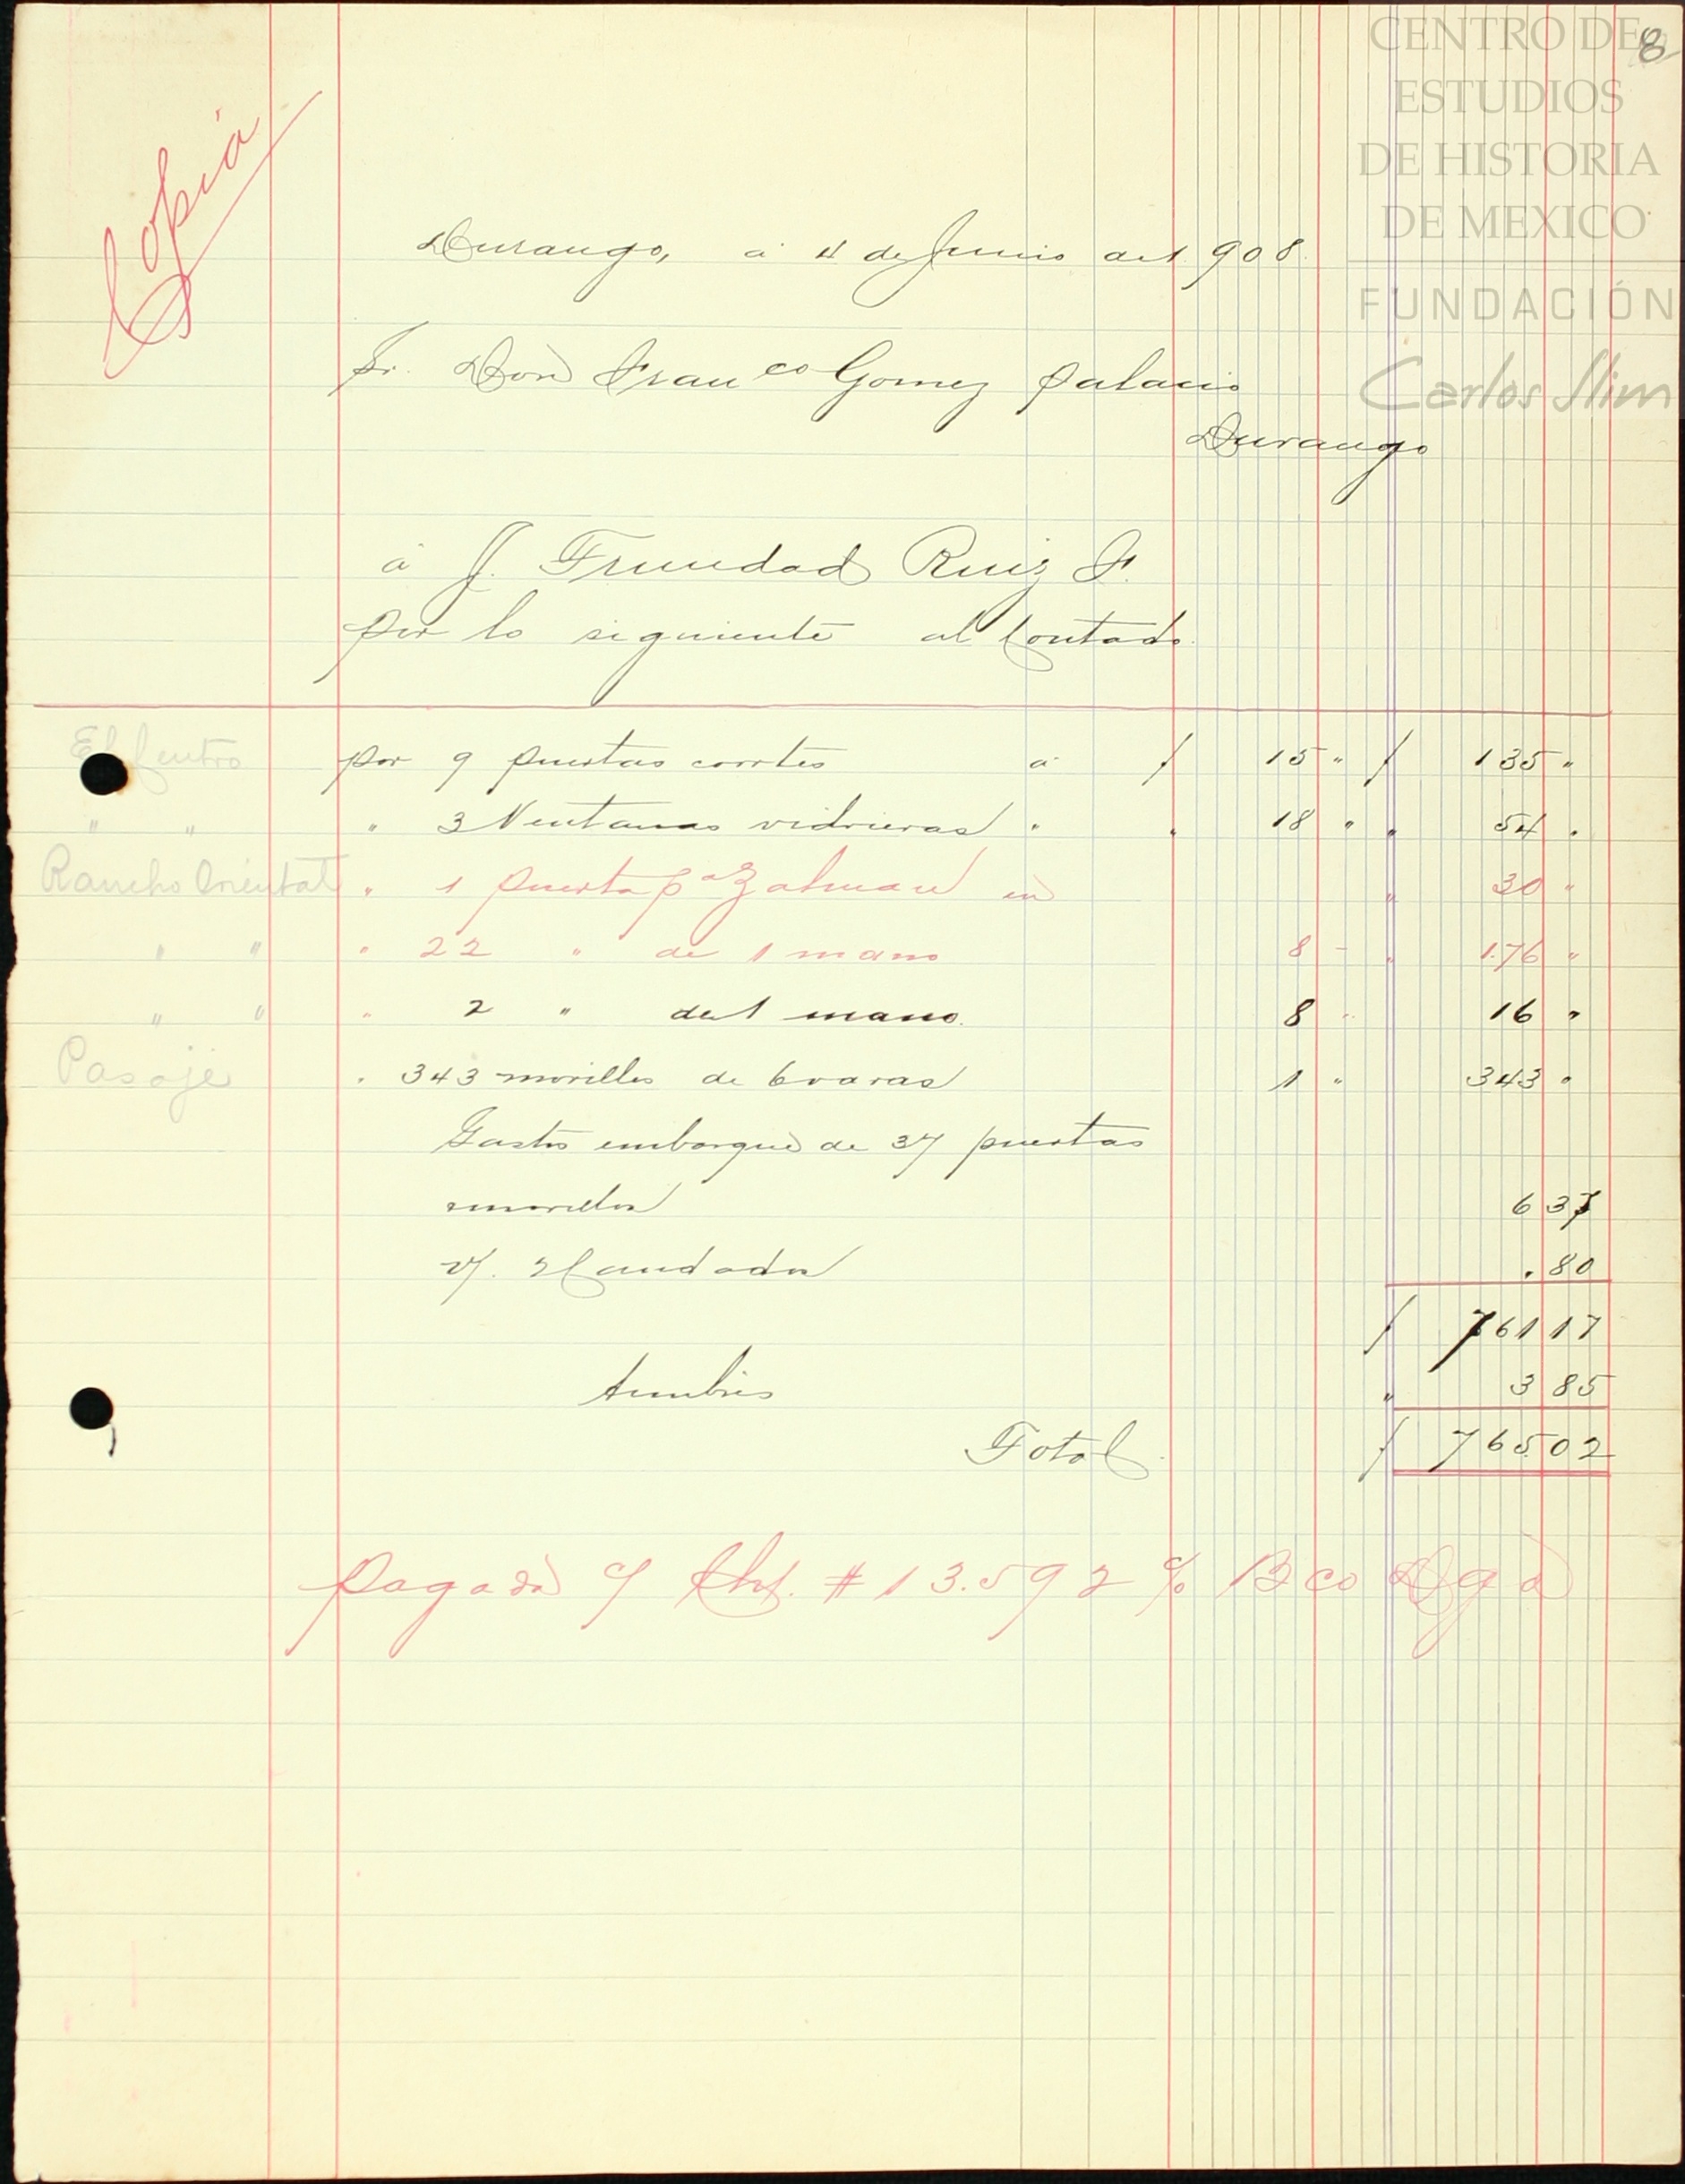 CENTRO DE
ESTUDIOS
DE HISTORIA
DE MEXICO
FUNDACIÓN
Carlos Slim
8
Copia
Durango, á 4 de Junio de 1908.
Sr. Don Franco Gomez Palacio
Durango
á J. Trinidad Ruiz F.
por lo siguiente al Contado.
El Centro por 9 puertas corrtes á $ 15 " $ 135 "
" " " 3 Ventanas vidrieras " " 18 " " 54 "
Rancho Oriental " 1 puerta pa en " 30 "
" " " 22 " de 1 mano 8 - " 176 "
" " " 2 " de 1 mano. 8 " 16 "
Pasaje " 343 morillos de 6 varas 1 " 343 "
Gastos embarque de 37 puertas
morillos 6 37
. 80
$ 761 17
timbres " 3 85
Total. $ 765.02
Pagado c/ Ch/. # 13.592 c/o Bco Dgo